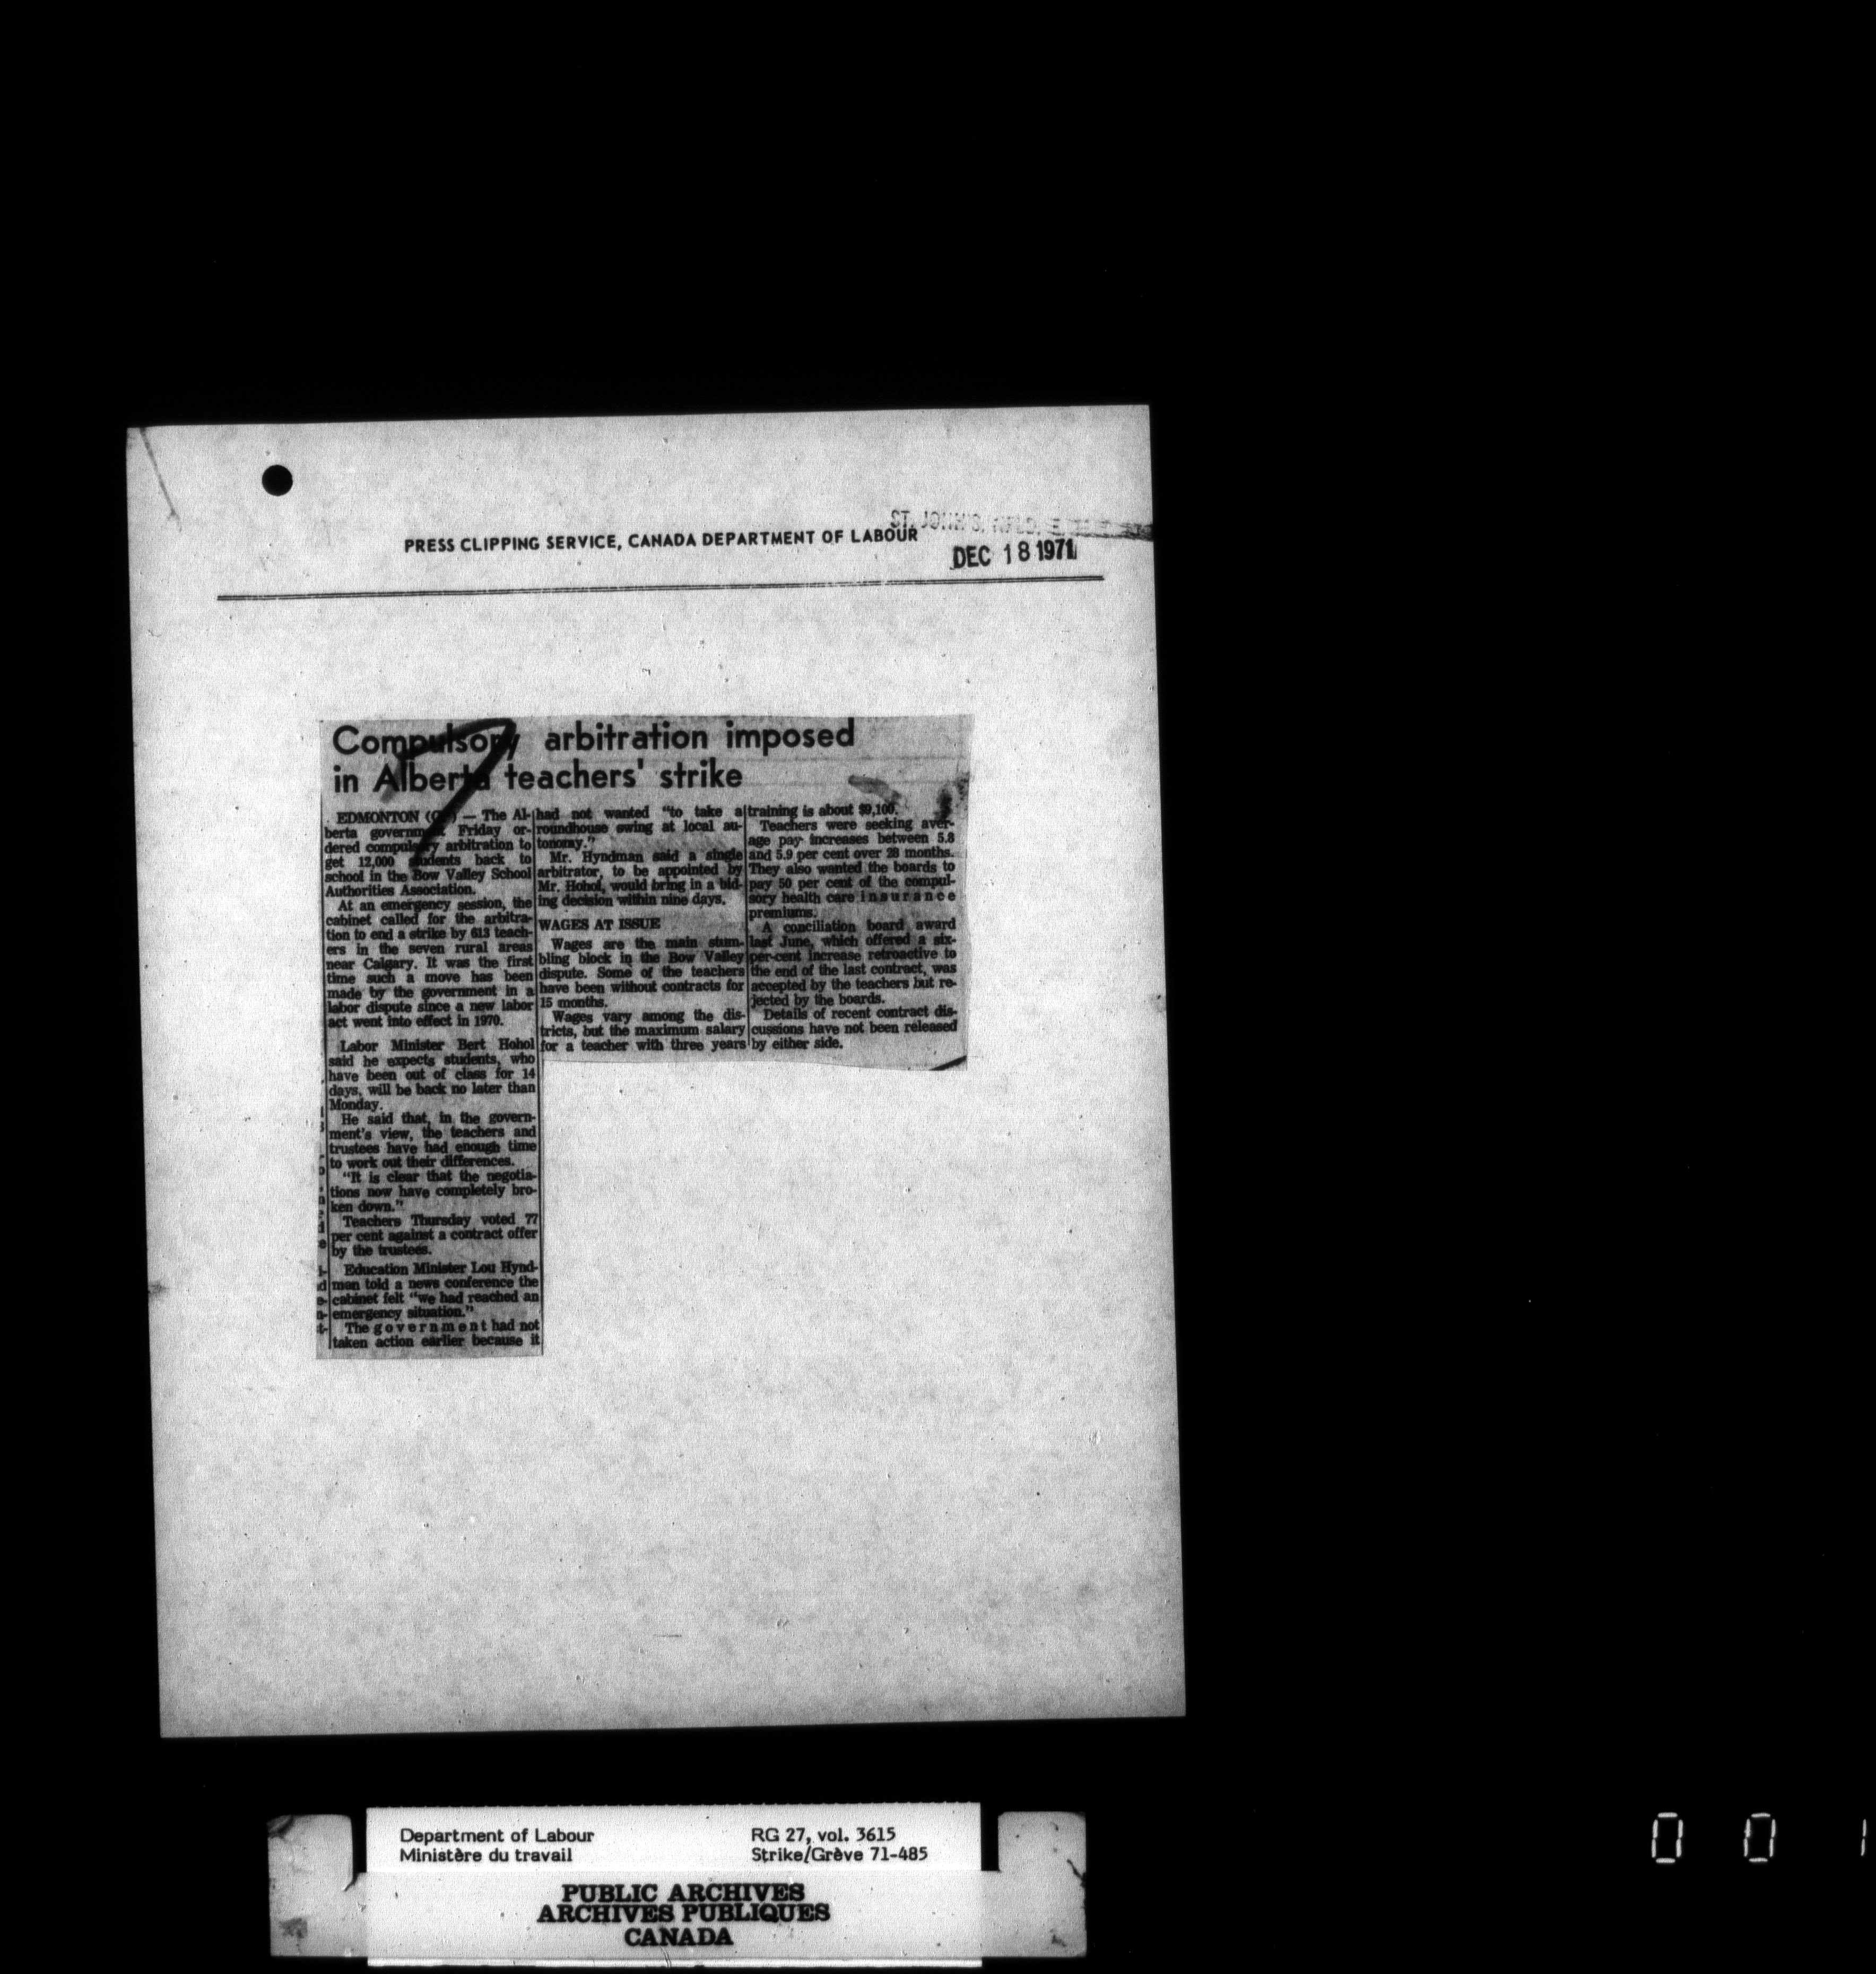 ST. JOHN'S, NFLD.
PRESS CLIPPING SERVICE, CANADA DEPARTMENT OF LABOUR
DEC 18 1971
Compulsory arbitration imposed
in Alberta teachers' strike
EDMONTON (CP) — The Al-
berta government Friday or-
dered compulsory arbitration to
get 12,000 students back to
school in the Bow Valley School
Authorities Association.
At an emergency session, the
cabinet called for the arbitra-
tion to end a strike by 613 teach-
ers in the seven rural areas
near Calgary. It was the first
time such a move has been
made by the government in a
labor dispute since a new labor
act went into effect in 1970.
Labor Minister Bert Hohol
said he expects students, who
have been out of class for 14
days, will be back no later than
Monday.
He said that, in the govern-
ment's view, the teachers and
trustees have had enough time
to work out their differences.
"It is clear that the negotia-
tions now have completely bro-
ken down."
Teachers Thursday voted 77
per cent against a contract offer
by the trustees.
Education Minister Lou Hynd-
man told a news conference the
cabinet felt "we had reached an
emergency situation."
The government had not
taken action earlier because it
had not wanted "to take a
roundhouse swing at local au-
tonomy."
Mr. Hyndman said a single
arbitrator, to be appointed by
Mr. Hohol, would bring in a bid-
ing decision within nine days.
WAGES AT ISSUE
Wages are the main stum-
bling block in the Bow Valley
dispute. Some of the teachers
have been without contracts for
15 months.
Wages vary among the dis-
tricts, but the maximum salary
for a teacher with three years
training is about $9,100.
Teachers were seeking aver-
age pay increases between 5.8
and 5.9 per cent over 28 months.
They also wanted the boards to
pay 50 per cent of the compul-
sory health care insurance
premiums.
A conciliation board award
last June, which offered a six-
per-cent increase retroactive to
the end of the last contract, was
accepted by the teachers but re-
jected by the boards.
Details of recent contract dis-
cussions have not been released
by either side.
Department of Labour
Ministère du travail
RG 27, vol. 3615
Strike/Grève 71-485
PUBLIC ARCHIVES
ARCHIVES PUBLIQUES
CANADA
0 0 1